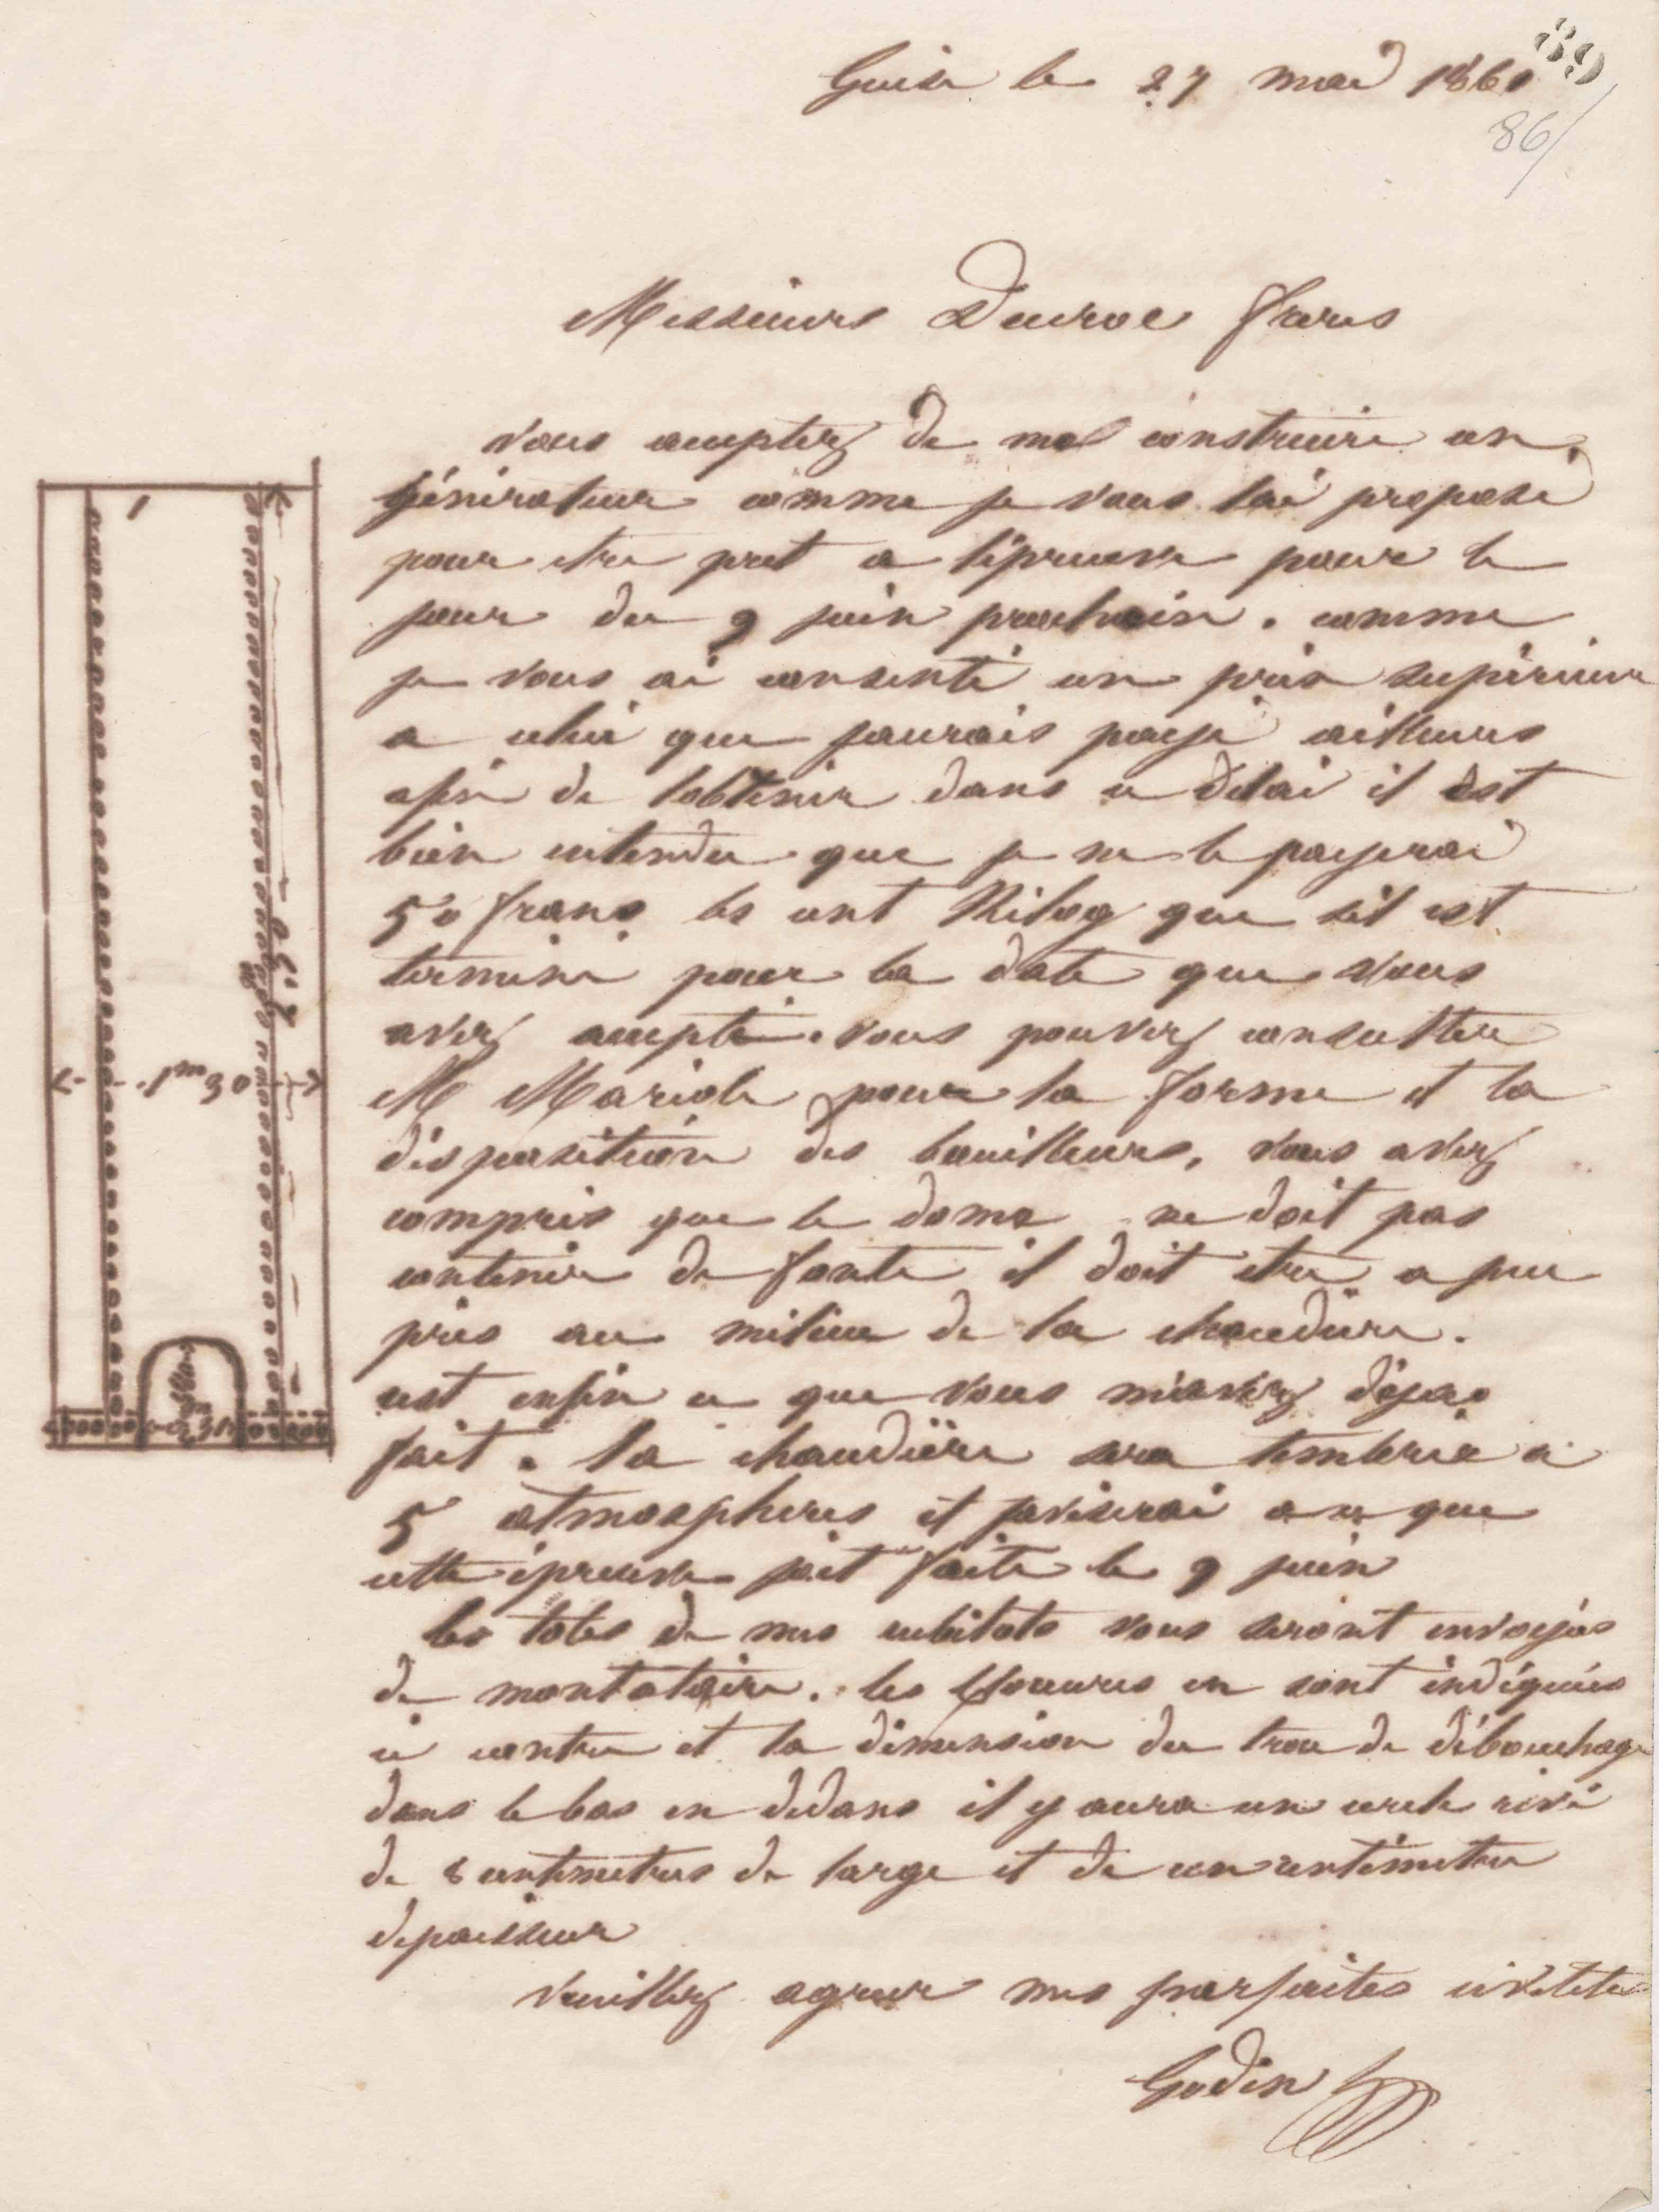 89
Guise le 27 mai 1860
86/
Messieurs Ducroc freres
vous acceptez de me construire un
générateur comme je vous lai proposé
pour etre pret a lépreuve pour le
jour du 9 juin prochain. comme
je vous ai consenti un prix supérieur
a celui que jaurais payé ailleurs
afin de lobtenir dans ce delai il est
bien entendu que je ne le payerai
50 franc les cent Kilog que sil est
terminé pour la date que vous
avez accepté. vous pouvez consulter
M Mariole pour la forme et la
disposition des bouilleurs, vous avez
compris que le dome ne doit pas
contenir de fonte il doit etre a peu
pres au milieu de la chaudiere.
cest enfin ce que vous m'avez déja
fait. la chaudière sera timbrée a
5 atmospheres et javiserai a ce que
cette épreuve soit faite le 9 juin
les toles de mes cubilots vous seront envoyés
de montataire. les clouures en sont indiquées
ci contre et la dimension du trou de débouchage
dans le bas en dedans il y aura un cercle rivé
de 8 centimetres de large et de un centimetre
depaisseur
veuillez agreer mes parfaites civilités
Godin
1m30